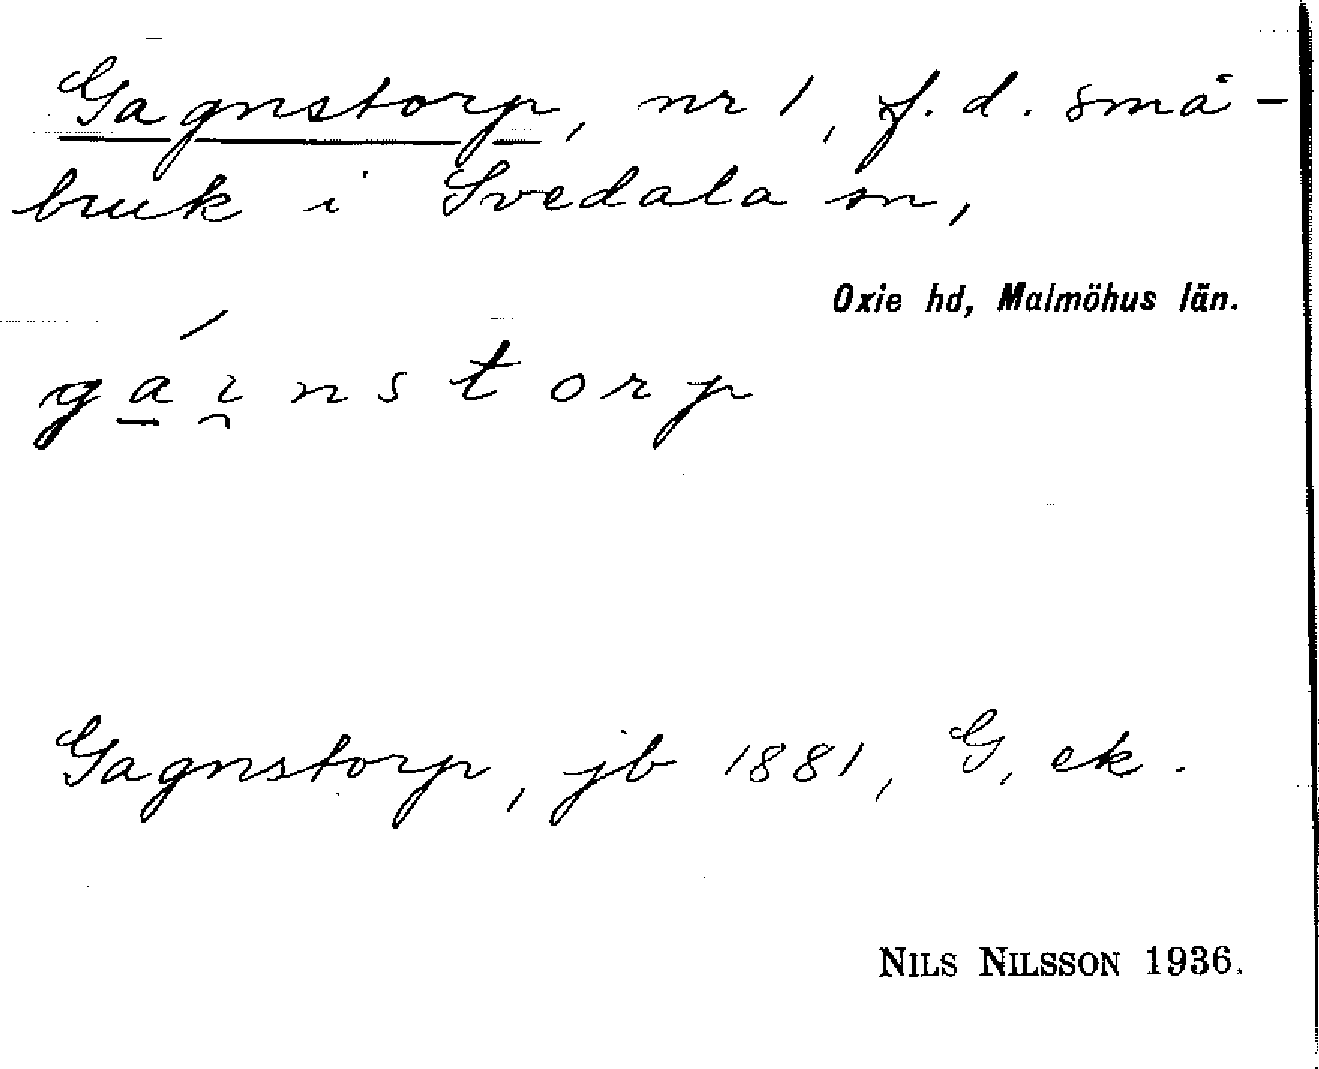 Gagnstorp, nr 1, f.d. små-
bruk i Svedala sn,
Oxie hd, Malmöhus län.
gá̱i̯nstorp
Gagnstorp, jb 1881, G, ek.
NILS NILSSON 1936.